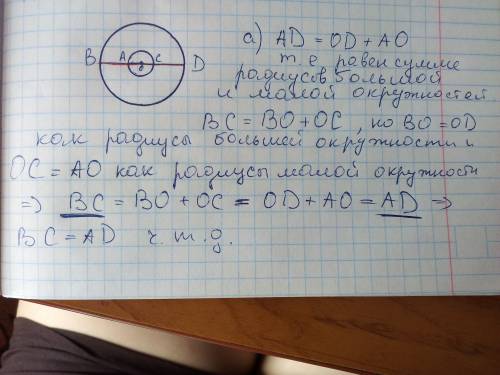 B A O C D
а) AD = OD + AO
т.е равен сумме
радиусов большой
и малой окружностей
BC = BO + OC, но BO = OD
как радиусы большей окружности и
OC = AO как радиусы малой окружности
=> BC = BO + OC = OD + AO = AD =>
BC = AD ч.т.д.